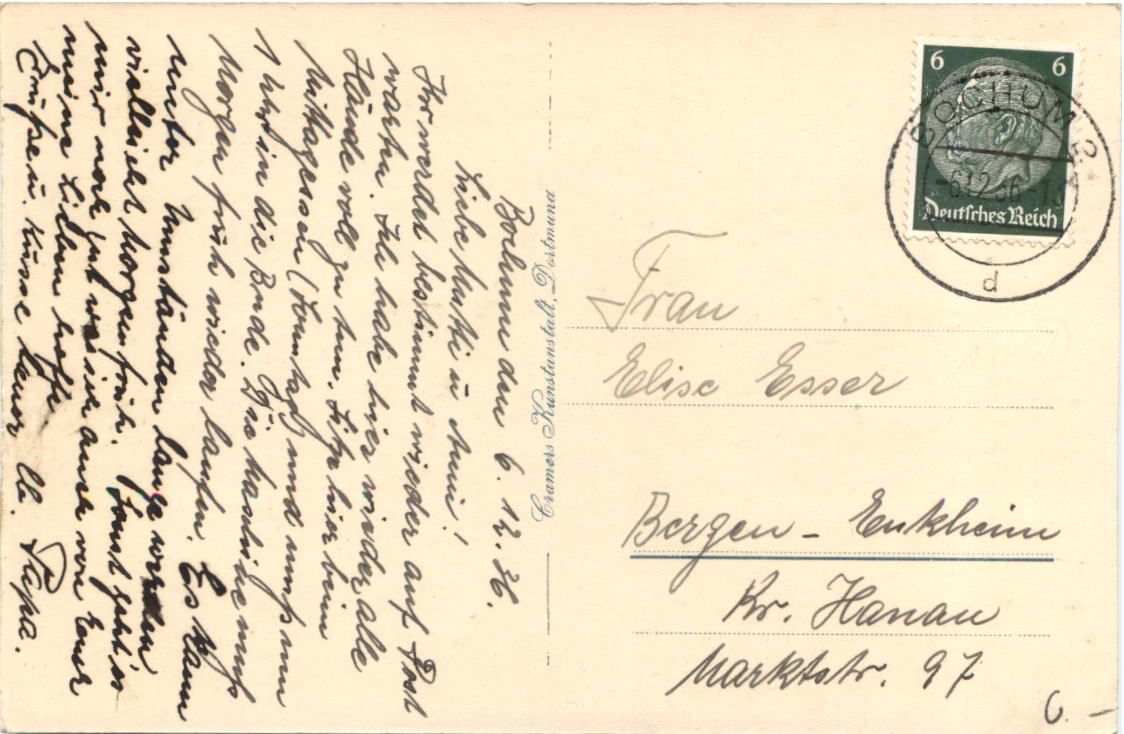 Bochum den 6. 12. 36.
Liebe Mutti u Anni!
Ihr werdet bestimmt wieder auf Post
warten. Ich habe hier wieder alle
Hände voll zu tun. Sitze hier beim
Mittagessen (Sonntag) und muß um
1 Uhr in die Bude. Die Maschine muß
Morgen früh wieder laufen. Es kann
unter Umständen lange werden
vielleicht Morgenfrüh. Sonst geht es
mir noch gut was ich auch von Euer
meine Lieben hoffe.
Grüße u. Küsse Euer lb. Papa.
Cramers Kunstanstalt, Dortmund
6 6
BOCHUM 2
-6.12.36-13
Deutsches Reich
d
Frau
Elise Esser
Bergen - Enkheim
Kr. Hanau
Marktstr. 97
6. -